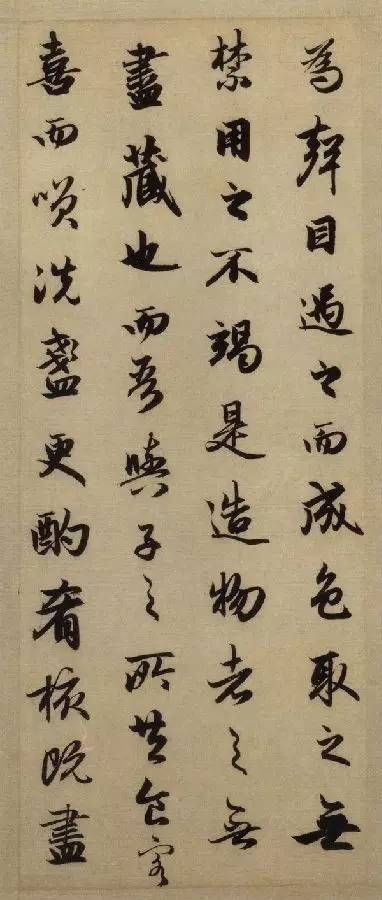 為聲目遇之而成色取之無
禁用之不竭是造物者之無
盡藏也而吾與子之所共食客
喜而笑洗盞更酌肴核既盡